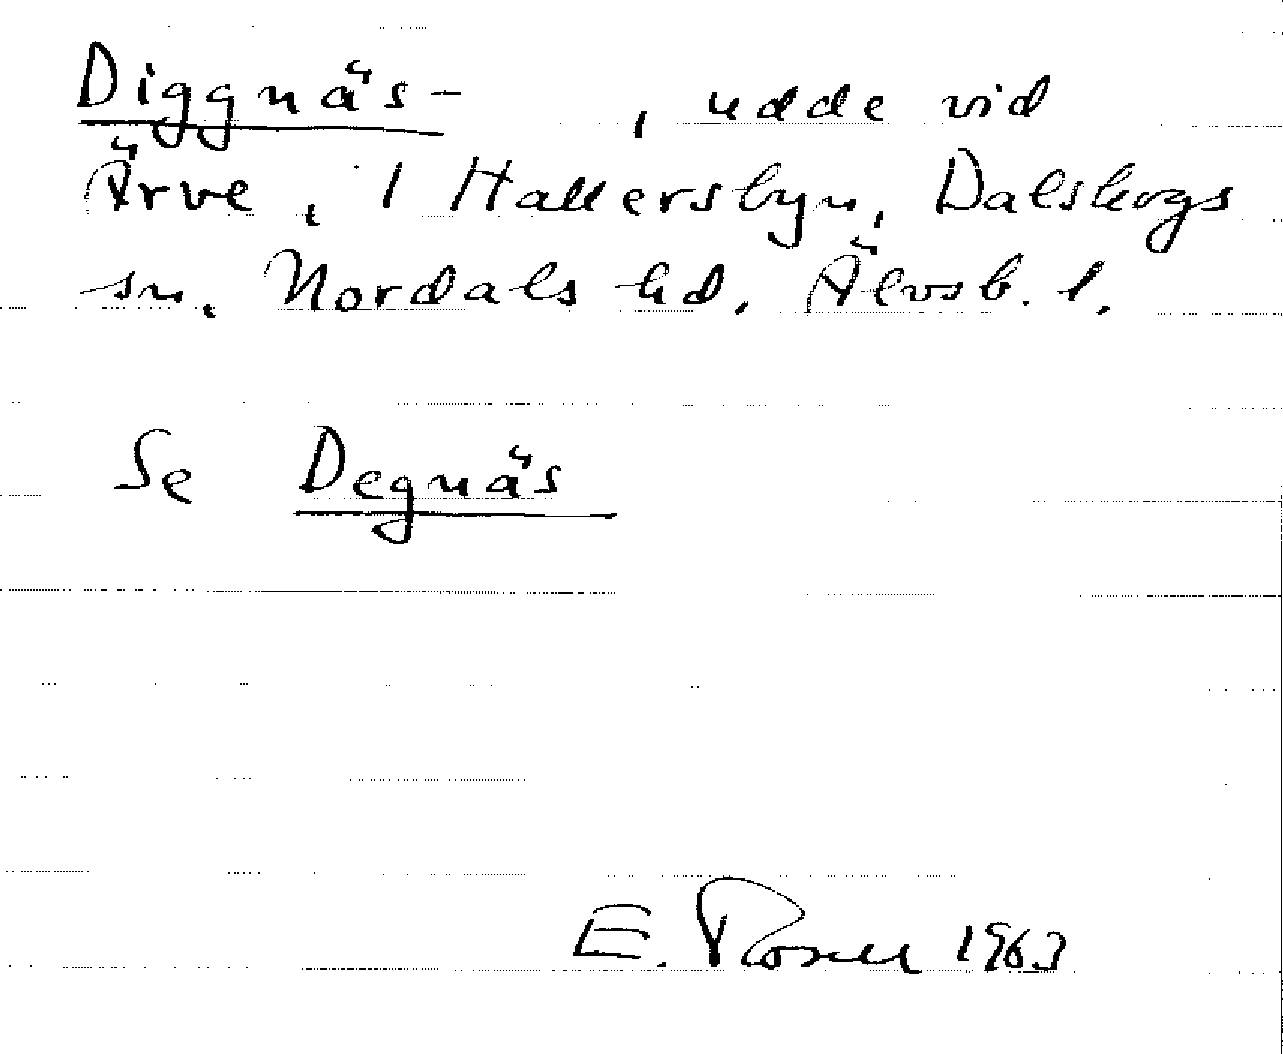 Diggnäs- , udde vid
Ärve, i Hallersbyn, Dalskogs
sn. Nordals hd. Älvsb. l.
Se Degnäs
E. Rosell 1963